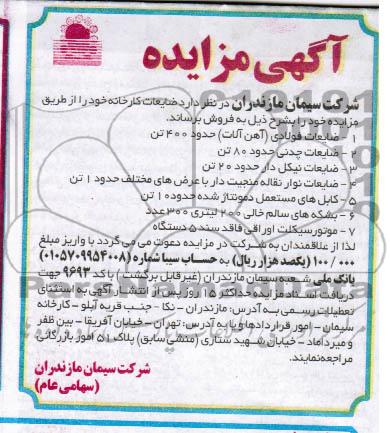 آگهی مزایده
شرکت سیمان مازندران در نظر دارد ضایعات کارخانه خود را از طریق
مزایده خود را بشرح ذیل به فروش برساند.
۱ - ضایعات فولادی (آهن آلات) حدود ۴۰۰ تن
۲ - ضایعات چدنی حدود ۸۰ تن
۳ - ضایعات نیکل دار حدود ۲۰ تن
۴ - ضایعات نوار نقاله منجیت دار با عرض های مختلف حدود ۱ تن
۵ - کابل های مستعمل دمونتاژ شده حدود ۱۰ تن
۶ - بشکه های سالم خالی ۲۰۰ لیتری ۳۰۰ عدد
۷ - موتورسیکلت اوراقی فاقد سند ۵ دستگاه
لذا از علاقمندان به شرکت در مزایده دعوت می می گردد با واریز مبلغ
۱۰۰/۰۰۰ (یکصد هزار ریال) به حساب سیبا شماره (۰۱۰۵۷۰۹۹۵۴۰۰۸)
بانک ملی شعبه سیمان مازندران (غیر قابل برگشت) با کد ۹۶۹۳ جهت
دریافت اسناد مزایده حداکثر ۱۵ روز پس از انتشار آگهی به استثنای
تعطیلات رسمی به آدرس: مازندران - نکا - جنب قریه آبلو - کارخانه
سیمان - امور قراردادها و یا به آدرس: تهران - خیابان آفریقا - بین ظفر
و میرداماد - خیابان شهید ستاری (منشی سابق) پلاک ۵۱ امور بازرگانی
مراجعه نمایند.
شرکت سیمان مازندران
(سهامی عام)